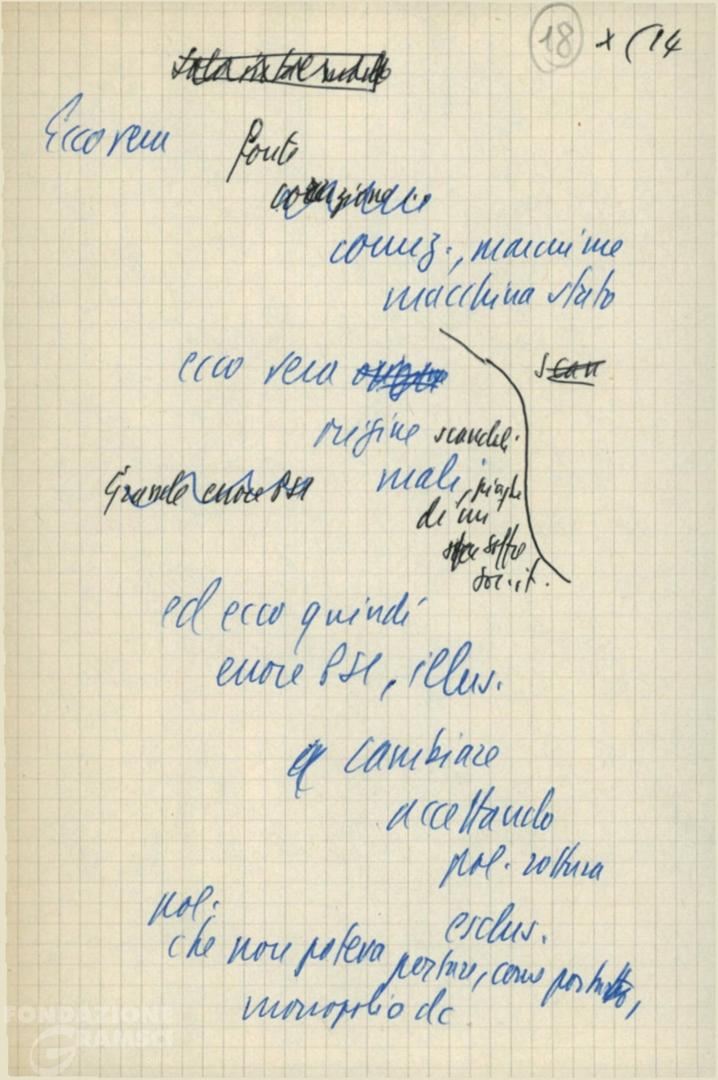 18 x (14
Ecco vera fonte
corruz., massime
macchina stato
ecco vera
scan
origine scandal.
mali, piaghe
Grande errore PSI
di cui
soffre
soc. it.
ed ecco quindi
errore PSI, illus.
cambiare
accettando
pol. rottura
pol.
esclus.
che non poteva portare, come portato,
monopolio dc
FONDAZIONE
GRAMSCI